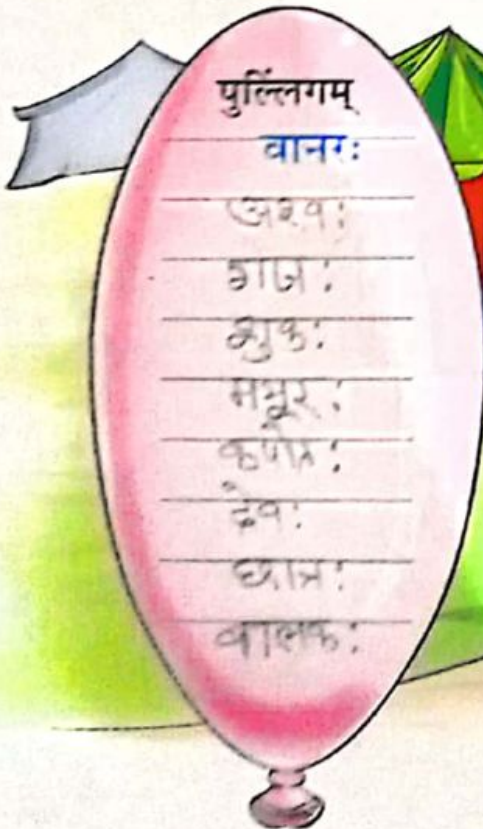 पुल्लिंगम्
वानरः
अश्वः
गजः
शुकः
मयूरः
कपोतः
देवः
छात्रः
बालकः